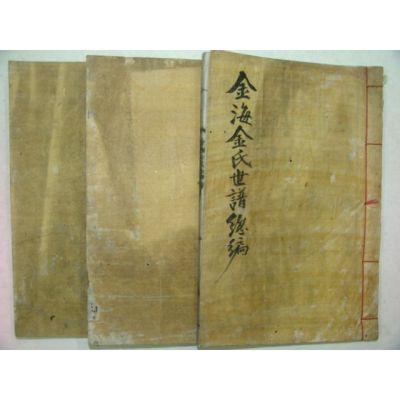 金海金氏世譜總編